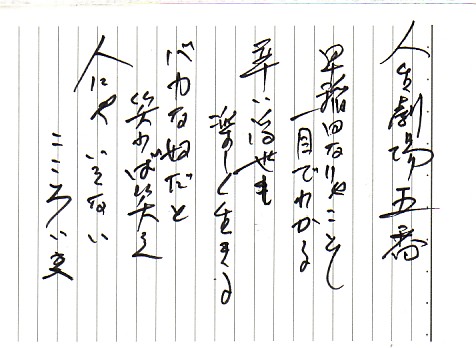 人生劇場五番
早稲田なりゃこそ
一目でわかる
辛い浮世も
楽しく生きる
バカな奴だと
笑わば笑え
人にゃいえない
こころい